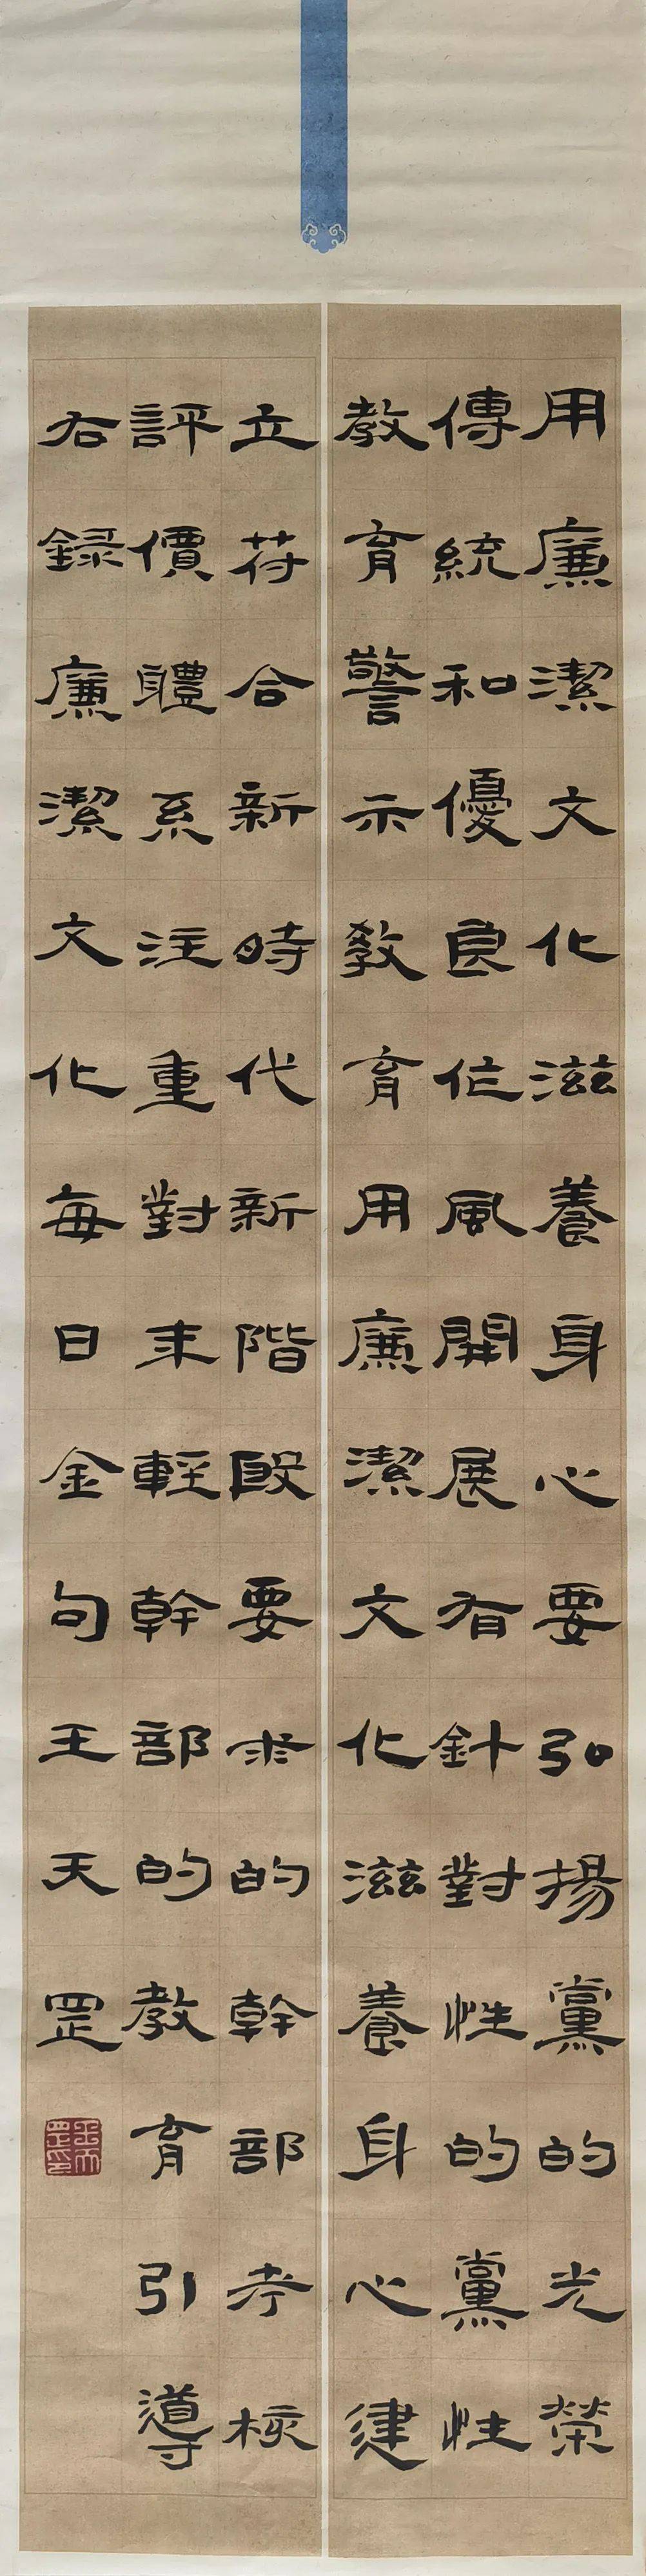 用廉潔文化滋養身心要弘揚黨的光榮
傳統和優良作風開展有針對性的黨性
教育警示教育用廉潔文化滋養身心建
立符合新時代新階段要求的幹部考核
評價體系注重對年輕幹部的教育引導
右錄廉潔文化每日金句王天罡